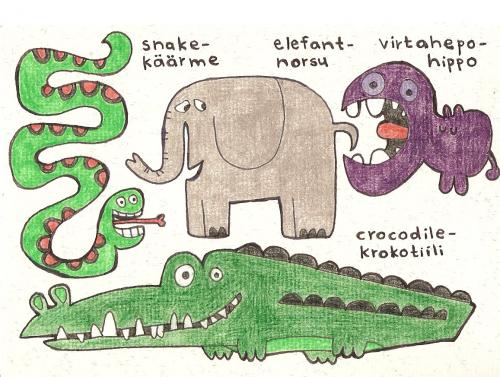 snake-
käärme
elefant-
norsu
virtahepo-
hippo
crocodile-
krokotiili